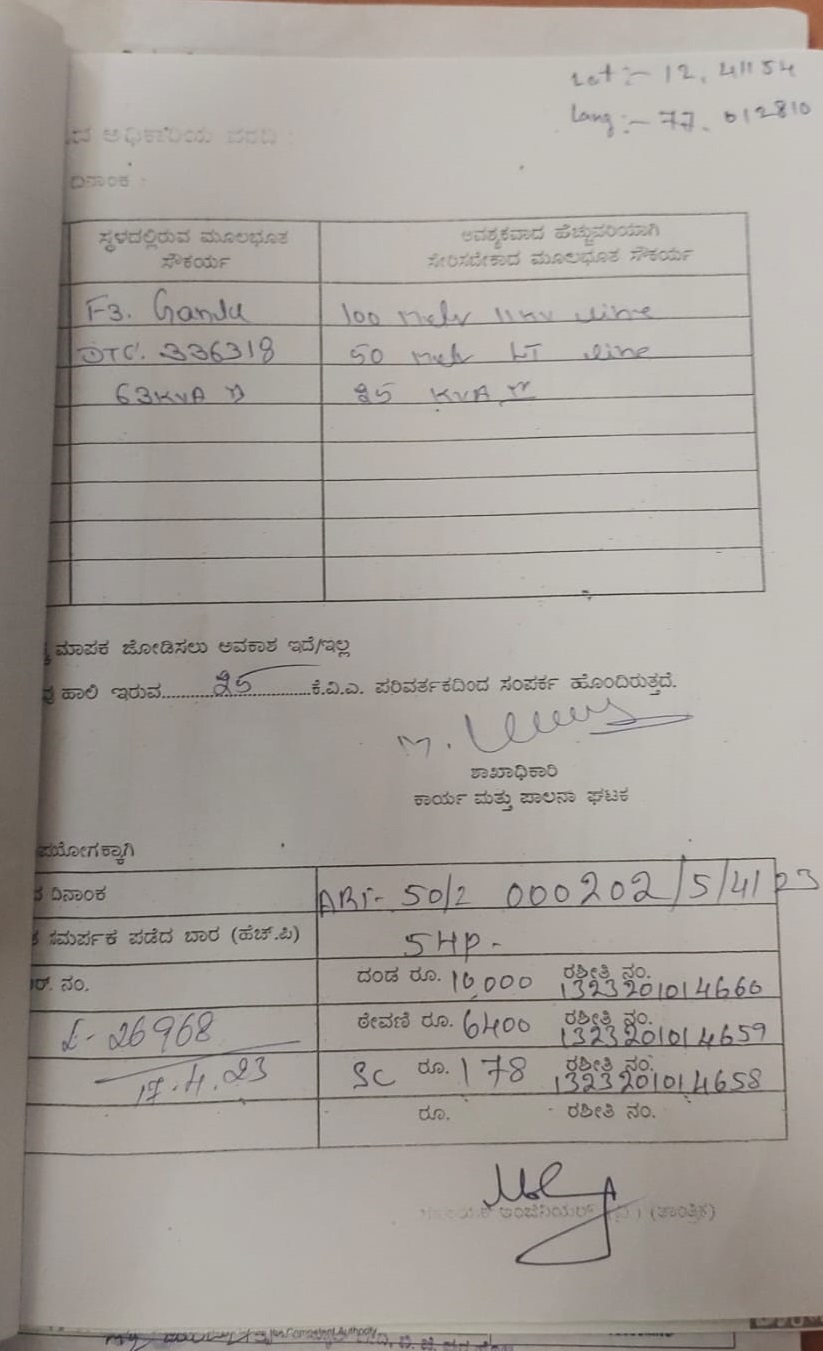 Lat :- 12. 41154
Long :- 77. 012810
ಅಧಿಕಾರಿಯ ವರದಿ :
ದಿನಾಂಕ :
ಸ್ಥಳದಲ್ಲಿರುವ ಮೂಲಭೂತ ಸೌಕರ್ಯ
ಅವಶ್ಯಕವಾದ ಹೆಚ್ಚುವರಿಯಾಗಿ ಸೇರಿಸಬೇಕಾದ ಮೂಲಭೂತ ಸೌಕರ್ಯ
F3. 100 11kv line
DTC. 336318 50 LT line
63KVA 25 KVA
ಮಾಪಕ ಜೋಡಿಸಲು ಅವಕಾಶ ಇದೆ/ಇಲ್ಲ
ಹಾಲಿ ಇರುವ.......25.......ಕೆ.ವಿ.ಎ. ಪರಿವರ್ತಕದಿಂದ ಸಂಪರ್ಕ ಹೊಂದಿರುತ್ತದೆ.
ಶಾಖಾಧಿಕಾರಿ
ಕಾರ್ಯ ಮತ್ತು ಪಾಲನಾ ಘಟಕ
ದಿನಾಂಕ 50/2 000202/5/4/23
ಸಮರ್ಪಕ ಪಡೆದ ಬಾರ (ಹೆಚ್.ಪಿ) 5HP-
ನಂ. ದಂಡ ರೂ. 10,000 ರಶೀತಿ ನಂ. 1323201014660
L-26968 ಠೇವಣಿ ರೂ. 6400 ರಶೀತಿ ನಂ. 1323201014659
17.4.23 SC ರೂ. 178 ರಶೀತಿ ನಂ. 1323201014658
ರೂ. ರಶೀತಿ ನಂ.
(ತಾಂತ್ರಿಕ)